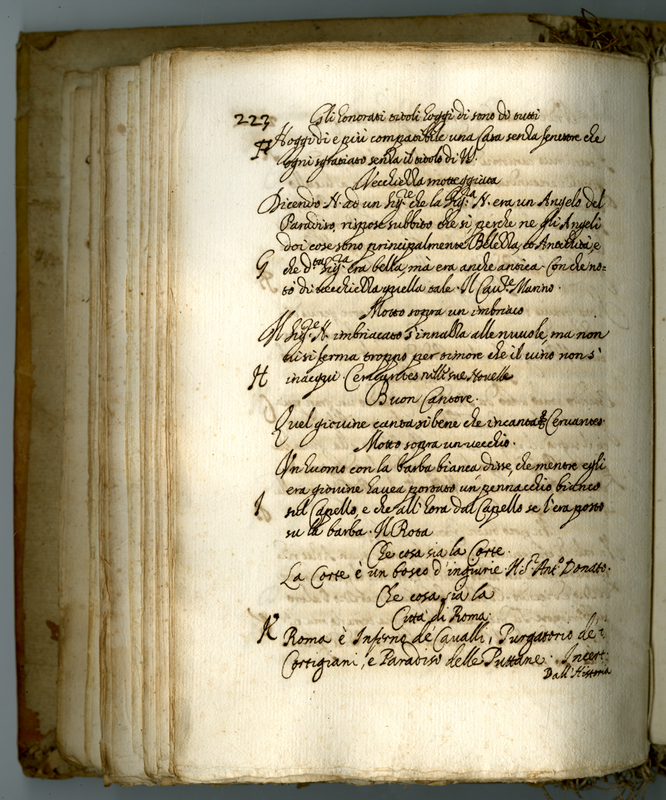 223
Gli honorati titoli hoggi di sono di tutti
F Hoggidi e più compatibile una Casa senza senetore che
ogni sgratiato senza il titolo di V.
Vecchiezza motteggiata
Dicendo N. ad un Sig.re che la Sig.ra N. era un Angelo del
Paradiso, rispose subbito che si perche ne gli Angeli
doi cose sono principalmente Bellezza, et Antichità, e
G che d.ta Sig.ra era bella, mà era anche antica. Con che no=
tò di vecchiezza quella tale. Il Cau.re Manno.
Motto sopra un imbriaco
Il Sig.re N. imbriacato s'innalza alle nuuole, ma non
ui si ferma troppo per timore che il uino non s'
H inacqui Ceruantes nelle sue Nouelle
Buon Cantore.
Quel giouine canta si bene che incanta. Ceruantes
Motto sopra un uecchio.
Un huomo con la barba bianca disse, che mentre egli
era giouine hauea portato un pennacchio bianco
I sul Capello, e che all'hora dal Capello se l'era posto
su la barba. Il Rota
Che cosa sia la Corte.
La Corte è un bosco d'ingiurie. M.S. Ant.o Donato.
Che cosa sia la
Città di Roma.
K Roma è Inferno de Caualli, Purgatorio de'
Cortigiani, e Paradiso delle Puttane. Incert.
Dall'Historia